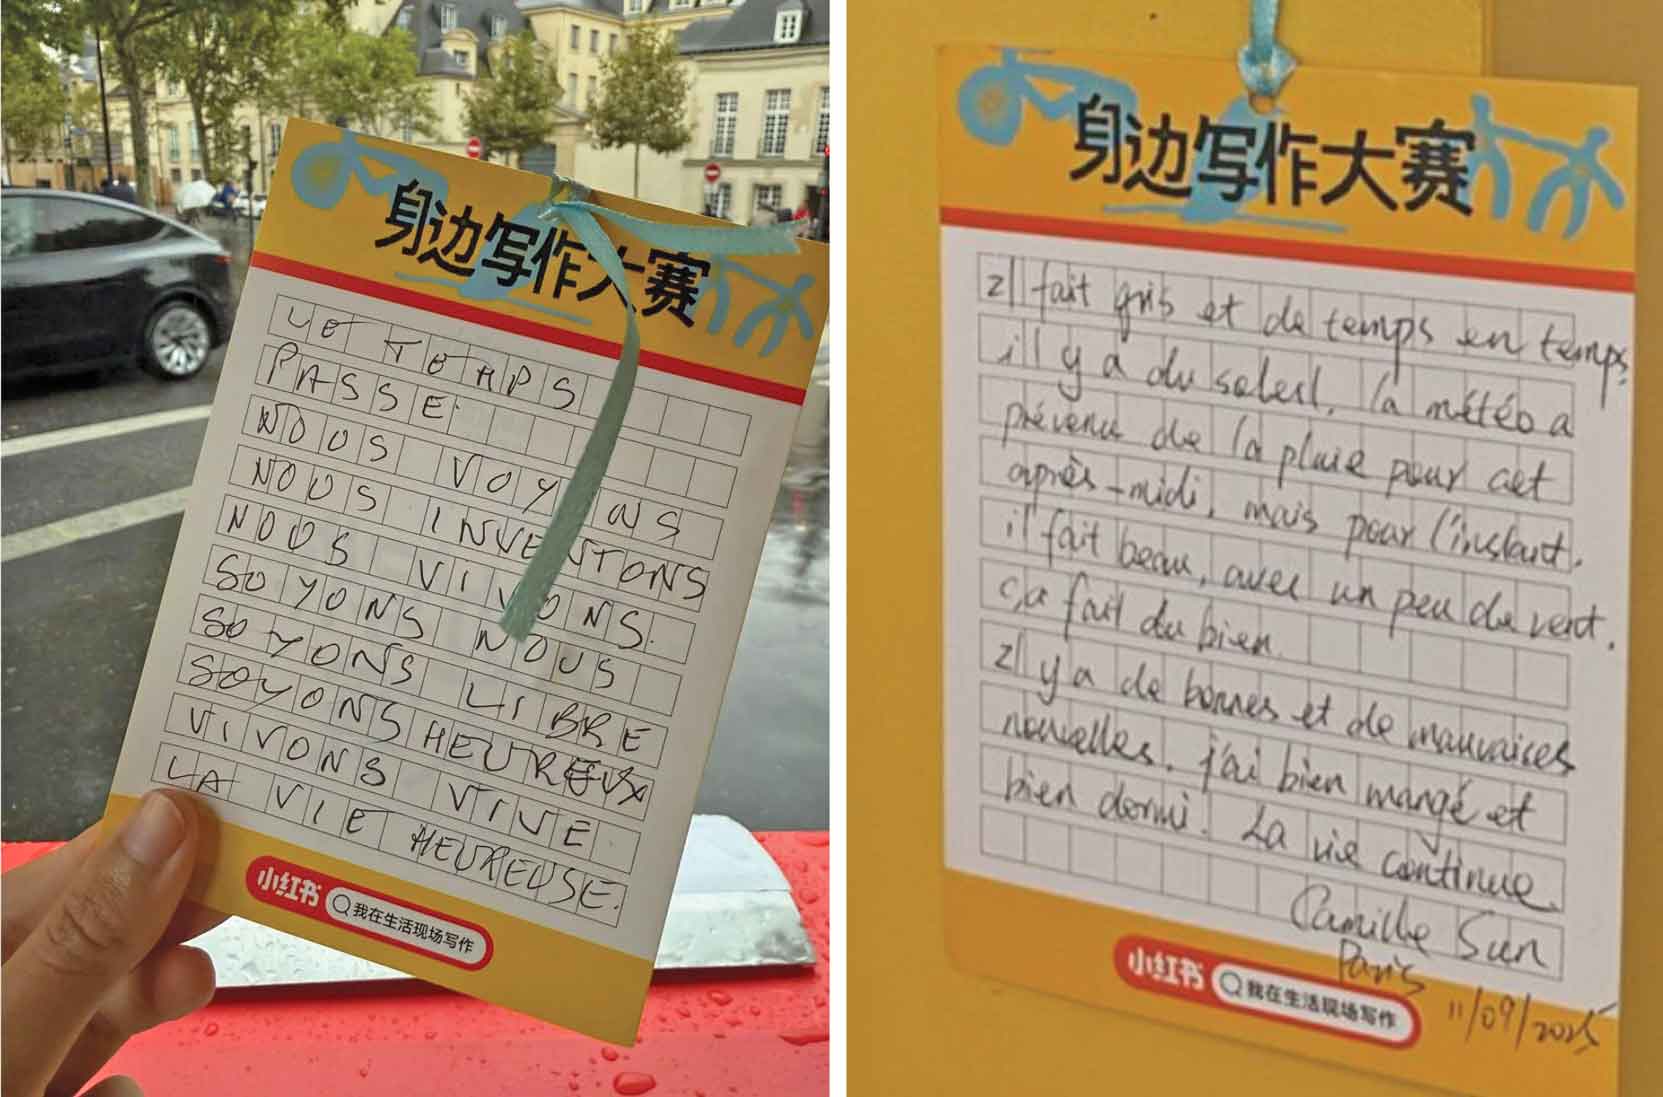 身边写作大赛
LE TEMPS
PASSE.
NOUS VOYONS
NOUS INVENTONS
NOUS VIVONS.
SOYONS NOUS
SOYONS LIBRE
SOYONS HEUREUX
VIVONS VIVE
LA VIE HEUREUSE.
小红书 我在生活现场写作
身边写作大赛
Il fait gris et de temps en temps
il y a du soleil. la météo a
prévenu de la pluie pour cet
après-midi, mais pour l'instant.
il fait beau, avec un peu de vent.
ça fait du bien
Il y a de bonnes et de mauvaises
nouvelles. j'ai bien mangé et
bien dormi. La vie continue.
Camille Sun
Paris
11/09/2025
小红书 我在生活现场写作